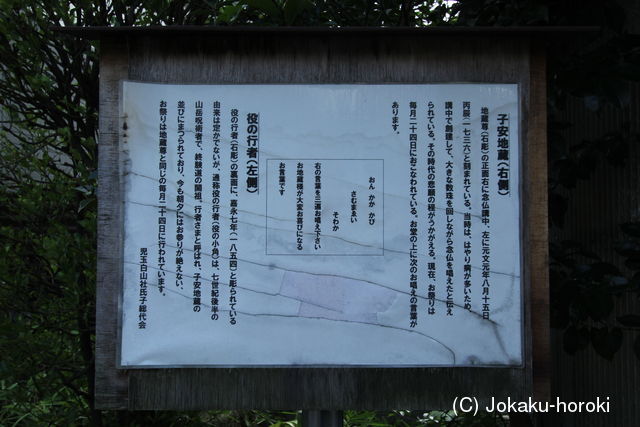 子安地蔵(右側)
地蔵尊(石彫)の正面右に念仏講中、左に元文元年八月十五日
丙辰(一七三六)と刻まれている。当時は、はやり病が多いため、
講中で創建して、大きな数珠を回しながら念仏を唱えたと伝え
られている。その時代の悲願の程がうかがえる。現在、お祭りは
毎月二十四日におこなわれている。お堂の上に次のお唱えの言葉が
あります。
おん かか かび
さむまゑい
そわか
右の言葉を三遍お唱え下さい
お地蔵様が大変お喜びになる
お言葉です
役の行者(左側)
役の行者(石彫)の裏面に、嘉永七年(一八五四)と彫られている
由来は定かでないが、通称役の行者(役の小角)は、七世紀後半の
山岳呪術者で、終験道の開祖。行者さまと呼ばれ、子安地蔵の
並びにまつられており、今も朝夕にはお参りが絶えない、
お祭りは地蔵尊と同じの毎月二十四日に行われています。
児玉白山社氏子総代会
(C) Jokaku-horoki